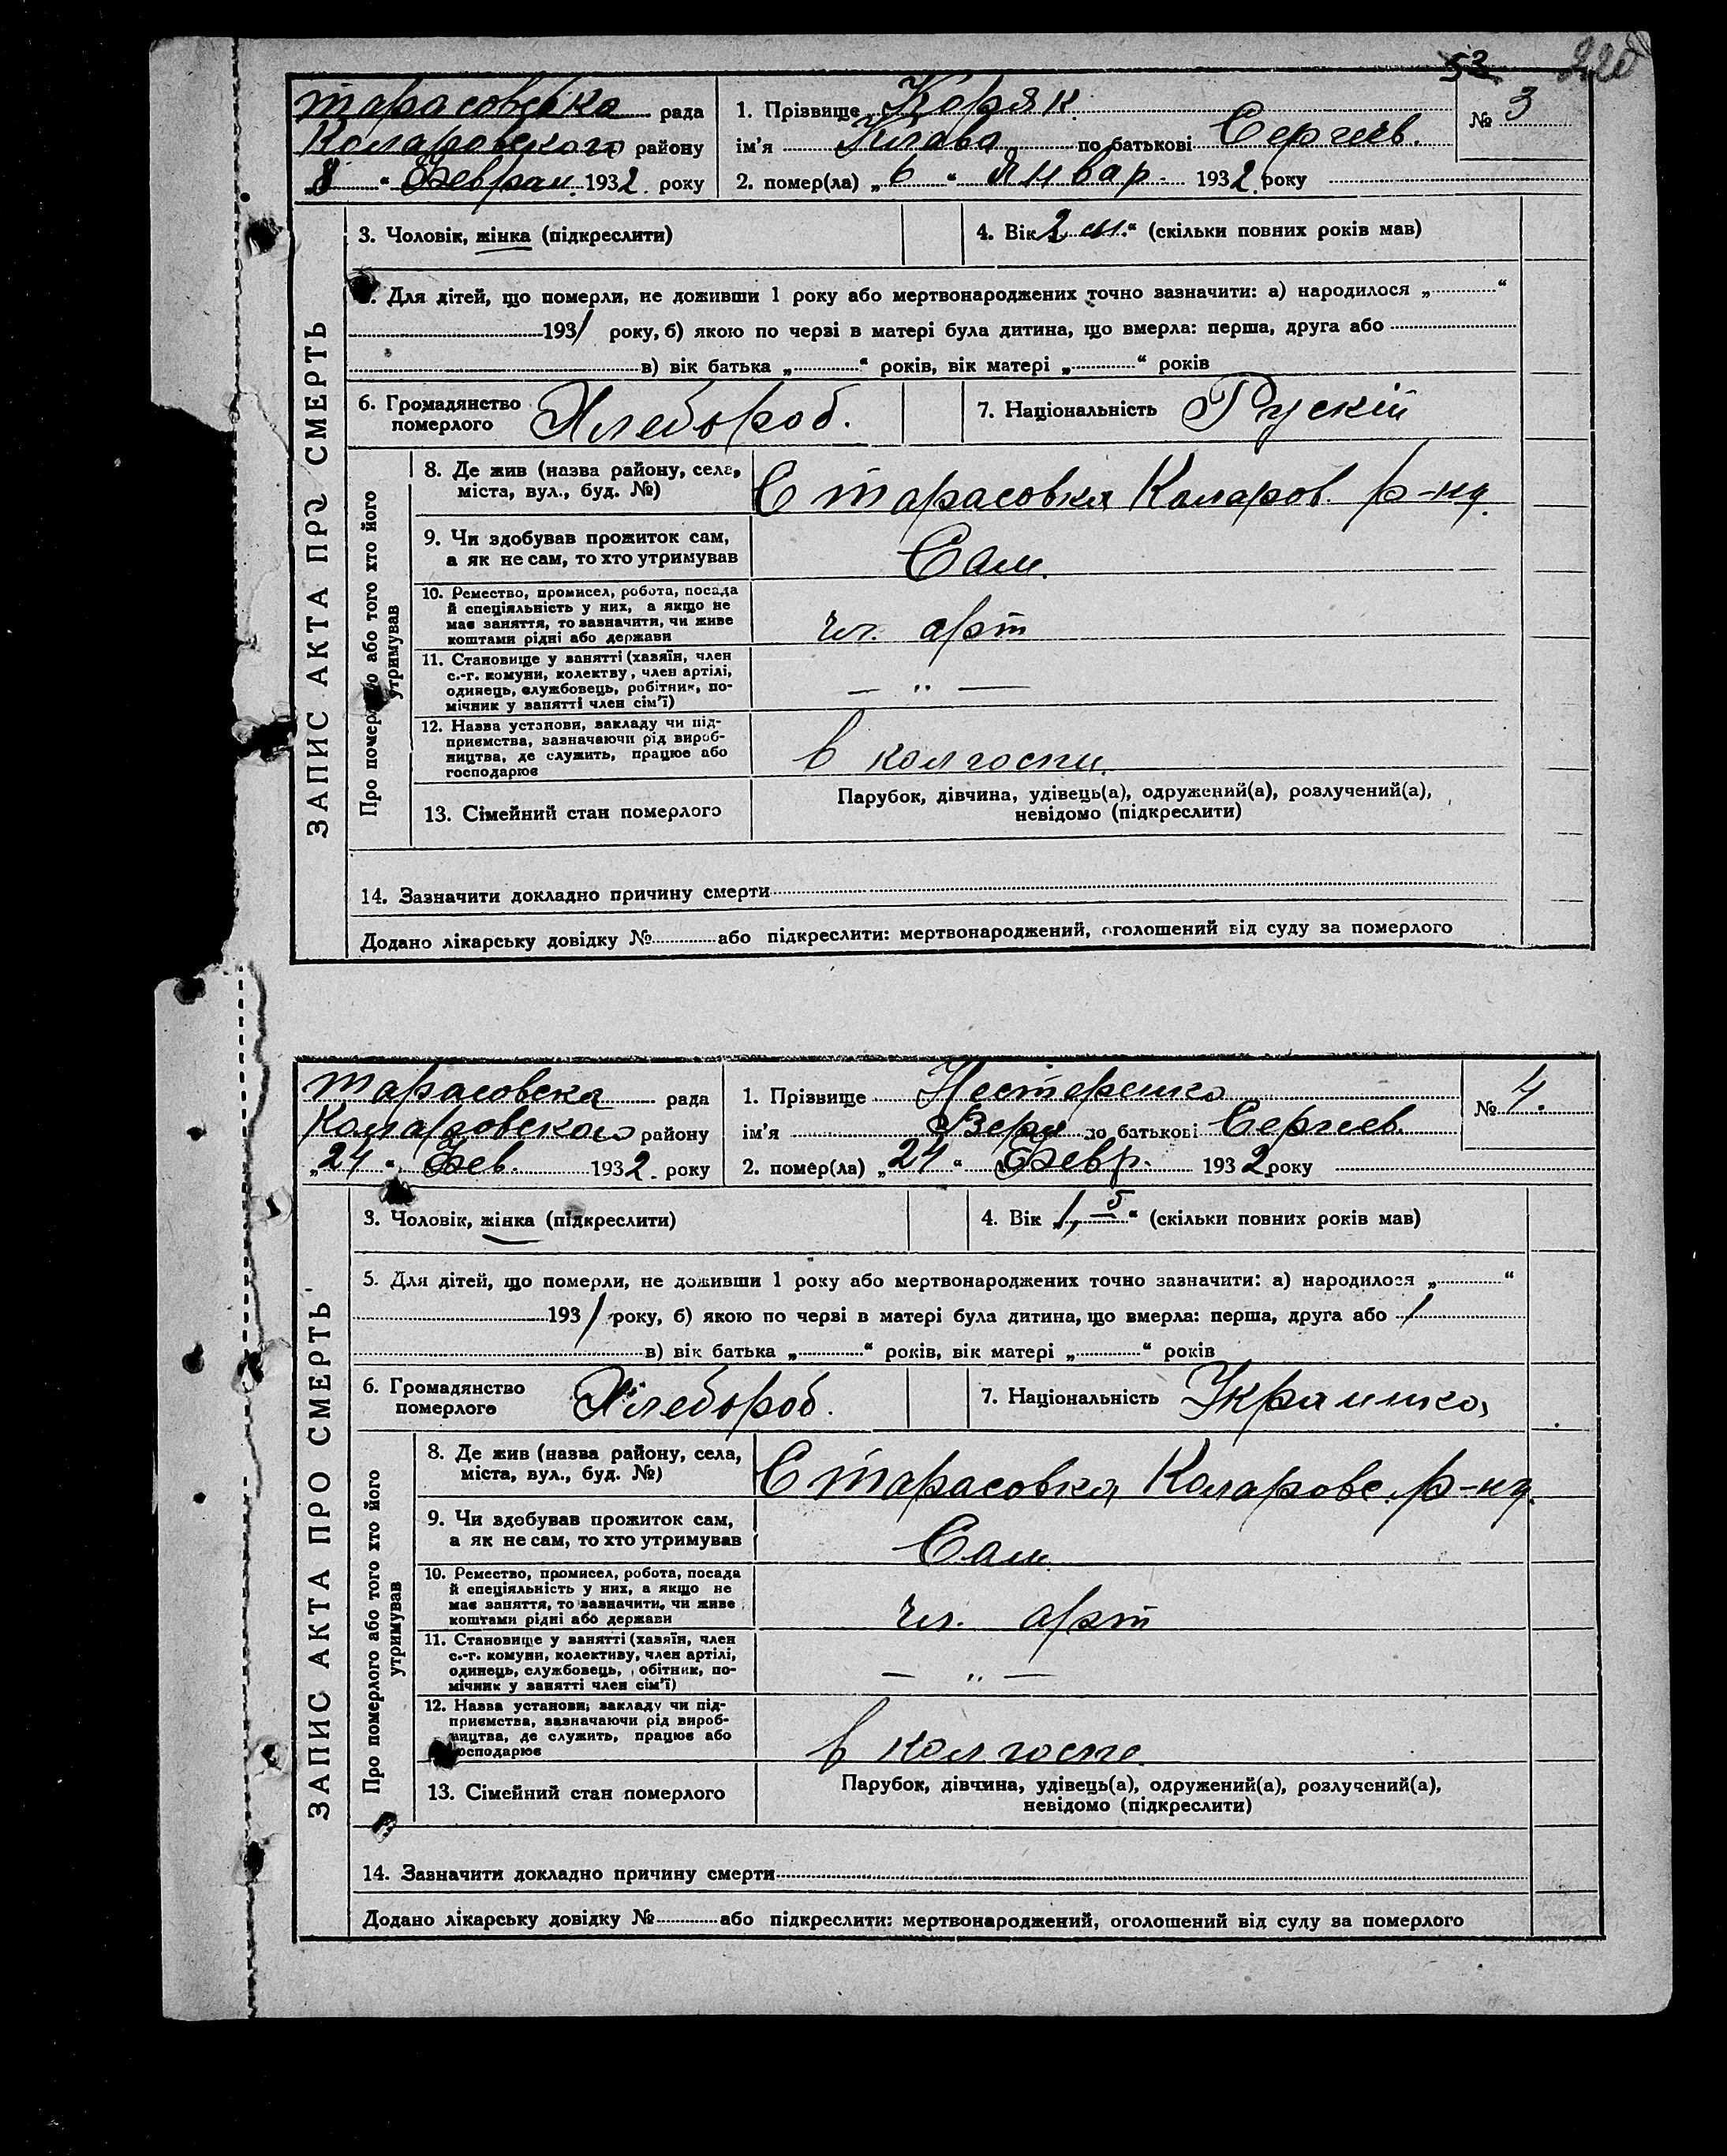 53 220
Тарасовска рада
Коларовского району
„8“ Феврал. 1932. року
1. Прізвище Коряк
ім'я Клава по батькові Сергиев.
2. помер(ла) „6“ Январ. 1932 року
№ 3
ЗАПИС АКТА ПРО СМЕРТЬ
3. Чоловік, жінка (підкреслити)
4. Вік „2 м.“ (скільки повних років мав)
Для дітей, що померли, не доживши 1 року або мертвонароджених точно зазначити: а) народилося „ “
1931 року, б) якою по черві в матері була дитина, що вмерла: перша, друга або
в) вік батька „ “ років, вік матері „ “ років
6. Громадянство
померлого
Хлебороб.
7. Національність Рускій
Про померлого або того хто його
утримував
8. Де жив (назва району, села,
міста, вул., буд. №)
С Тарасовка Коларов. р-на.
9. Чи здобував прожиток сам,
а як не сам, то хто утримував
Сам.
10. Ремество, промисел, робота, посада
й спеціяльність у них, а якщо не
має заняття, то зазначити, чи живе
коштами рідні або держави
чл. арт
11. Становище у занятті (хазяїн, член
с.-г. комуни, колектву, член артілі,
одинець, службовець, робітник, по-
мічник у занятті член сім'ї)
— „ —
12. Назва установи, закладу чи під-
приємства, зазначаючи рід вироб-
ництва, де служить, працює або
господарює
в колгоспи.
13. Сімейний стан померлого
Парубок, дівчина, удівець(а), одружений(а), розлучений(а),
невідомо (підкреслити)
14. Зазначити докладно причину смерти
Додано лікарську довідку № або підкреслити: мертвонароджений, оголошений від суду за померлого
Тарасовска рада
Коларовского району
„24“ Фев. 1932. року
1. Прізвище Нестеренко
ім'я Вера по батькові Сергиев.
2. помер(ла) „24“ Февр. 1932 року
№ 4.
ЗАПИС АКТА ПРО СМЕРТЬ
3. Чоловік, жінка (підкреслити)
4. Вік „1, 5“ (скільки повних років мав)
5. Для дітей, що померли, не доживши 1 року або мертвонароджених точно зазначити: а) народилося „ “
1931 року, б) якою по черві в матері була дитина, що вмерла: перша, друга або 1
в) вік батька „ “ років, вік матері „ “ років
6. Громадянство
померлого
Хлебороб.
7. Національність Украинка
Про померлого або того хто його
утримував
8. Де жив (назва району, села,
міста, вул., буд. №)
С Тарасовка Коларовс. р-на.
9. Чи здобував прожиток сам,
а як не сам, то хто утримував
Сам
10. Ремество, промисел, робота, посада
й спеціяльність у них, а якщо не
має заняття, то зазначити, чи живе
коштами рідні або держави
чл. арт
11. Становище у занятті (хазяїн, член
с.-г. комуни, колективу, член артілі,
одинець, службовець, обітник, по-
мічник у занятті член сім'ї)
— „ —
12. Назва установи, закладу чи під-
приємства, зазначаючи рід вироб-
ництва, де служить, працює або
господарює
в колгоспе
13. Сімейний стан померлого
Парубок, дівчина, удівець(а), одружений(а), розлучений(а),
невідомо (підкреслити)
14. Зазначити докладно причину смерти
Додано лікарську довідку № або підкреслити: мертвонароджений, оголошений від суду за померлого